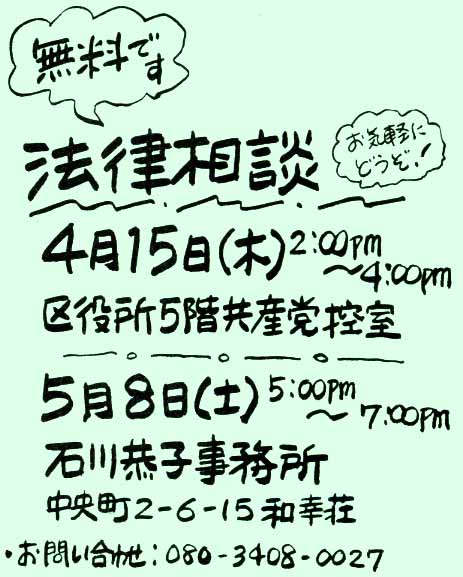 無料です
法律相談
お気軽に
どうぞ!
4月15日(木)2:00pm
～4:00pm
区役所5階共産党控室
5月8日(土)5:00pm
～7:00pm
石川恭子事務所
中央町2-6-15和幸荘
・お問い合わせ:080-3408-0027